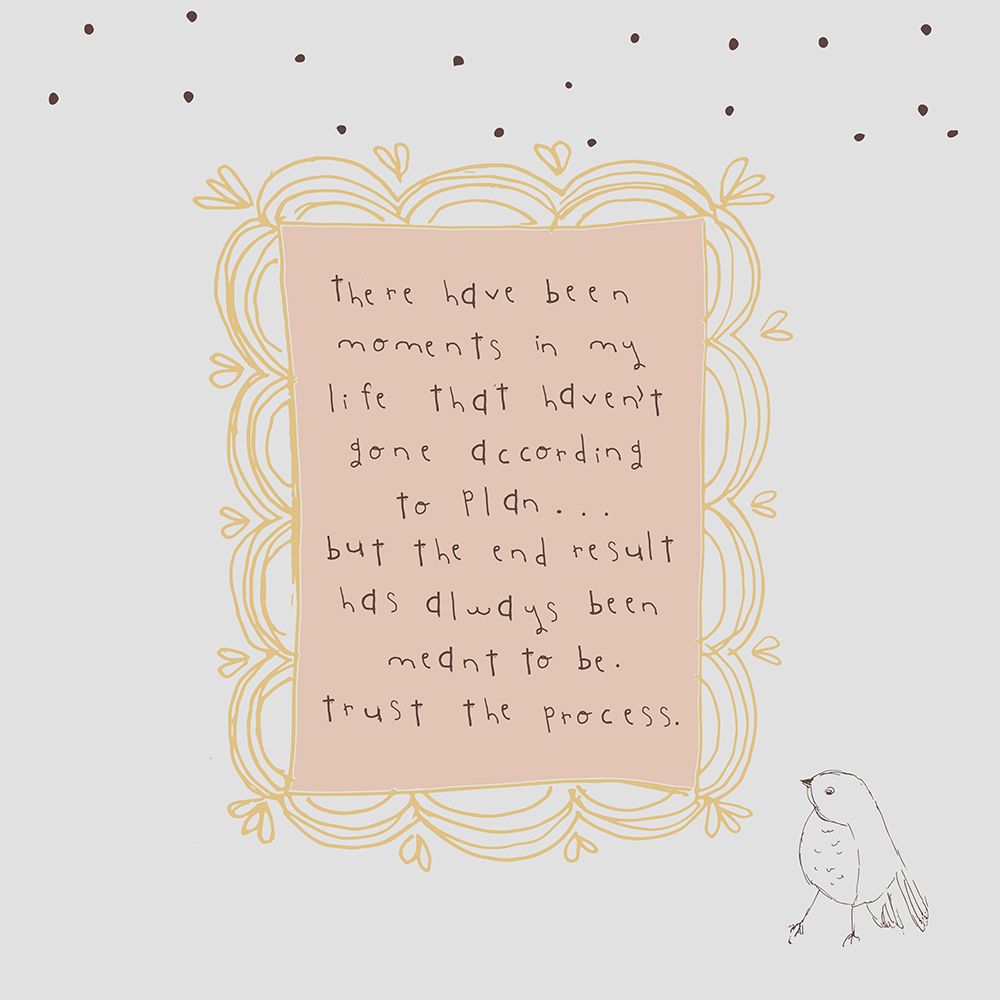 there have been
moments in my
life that haven't
gone according
to plan...
but the end result
has always been
meant to be.
trust the process.